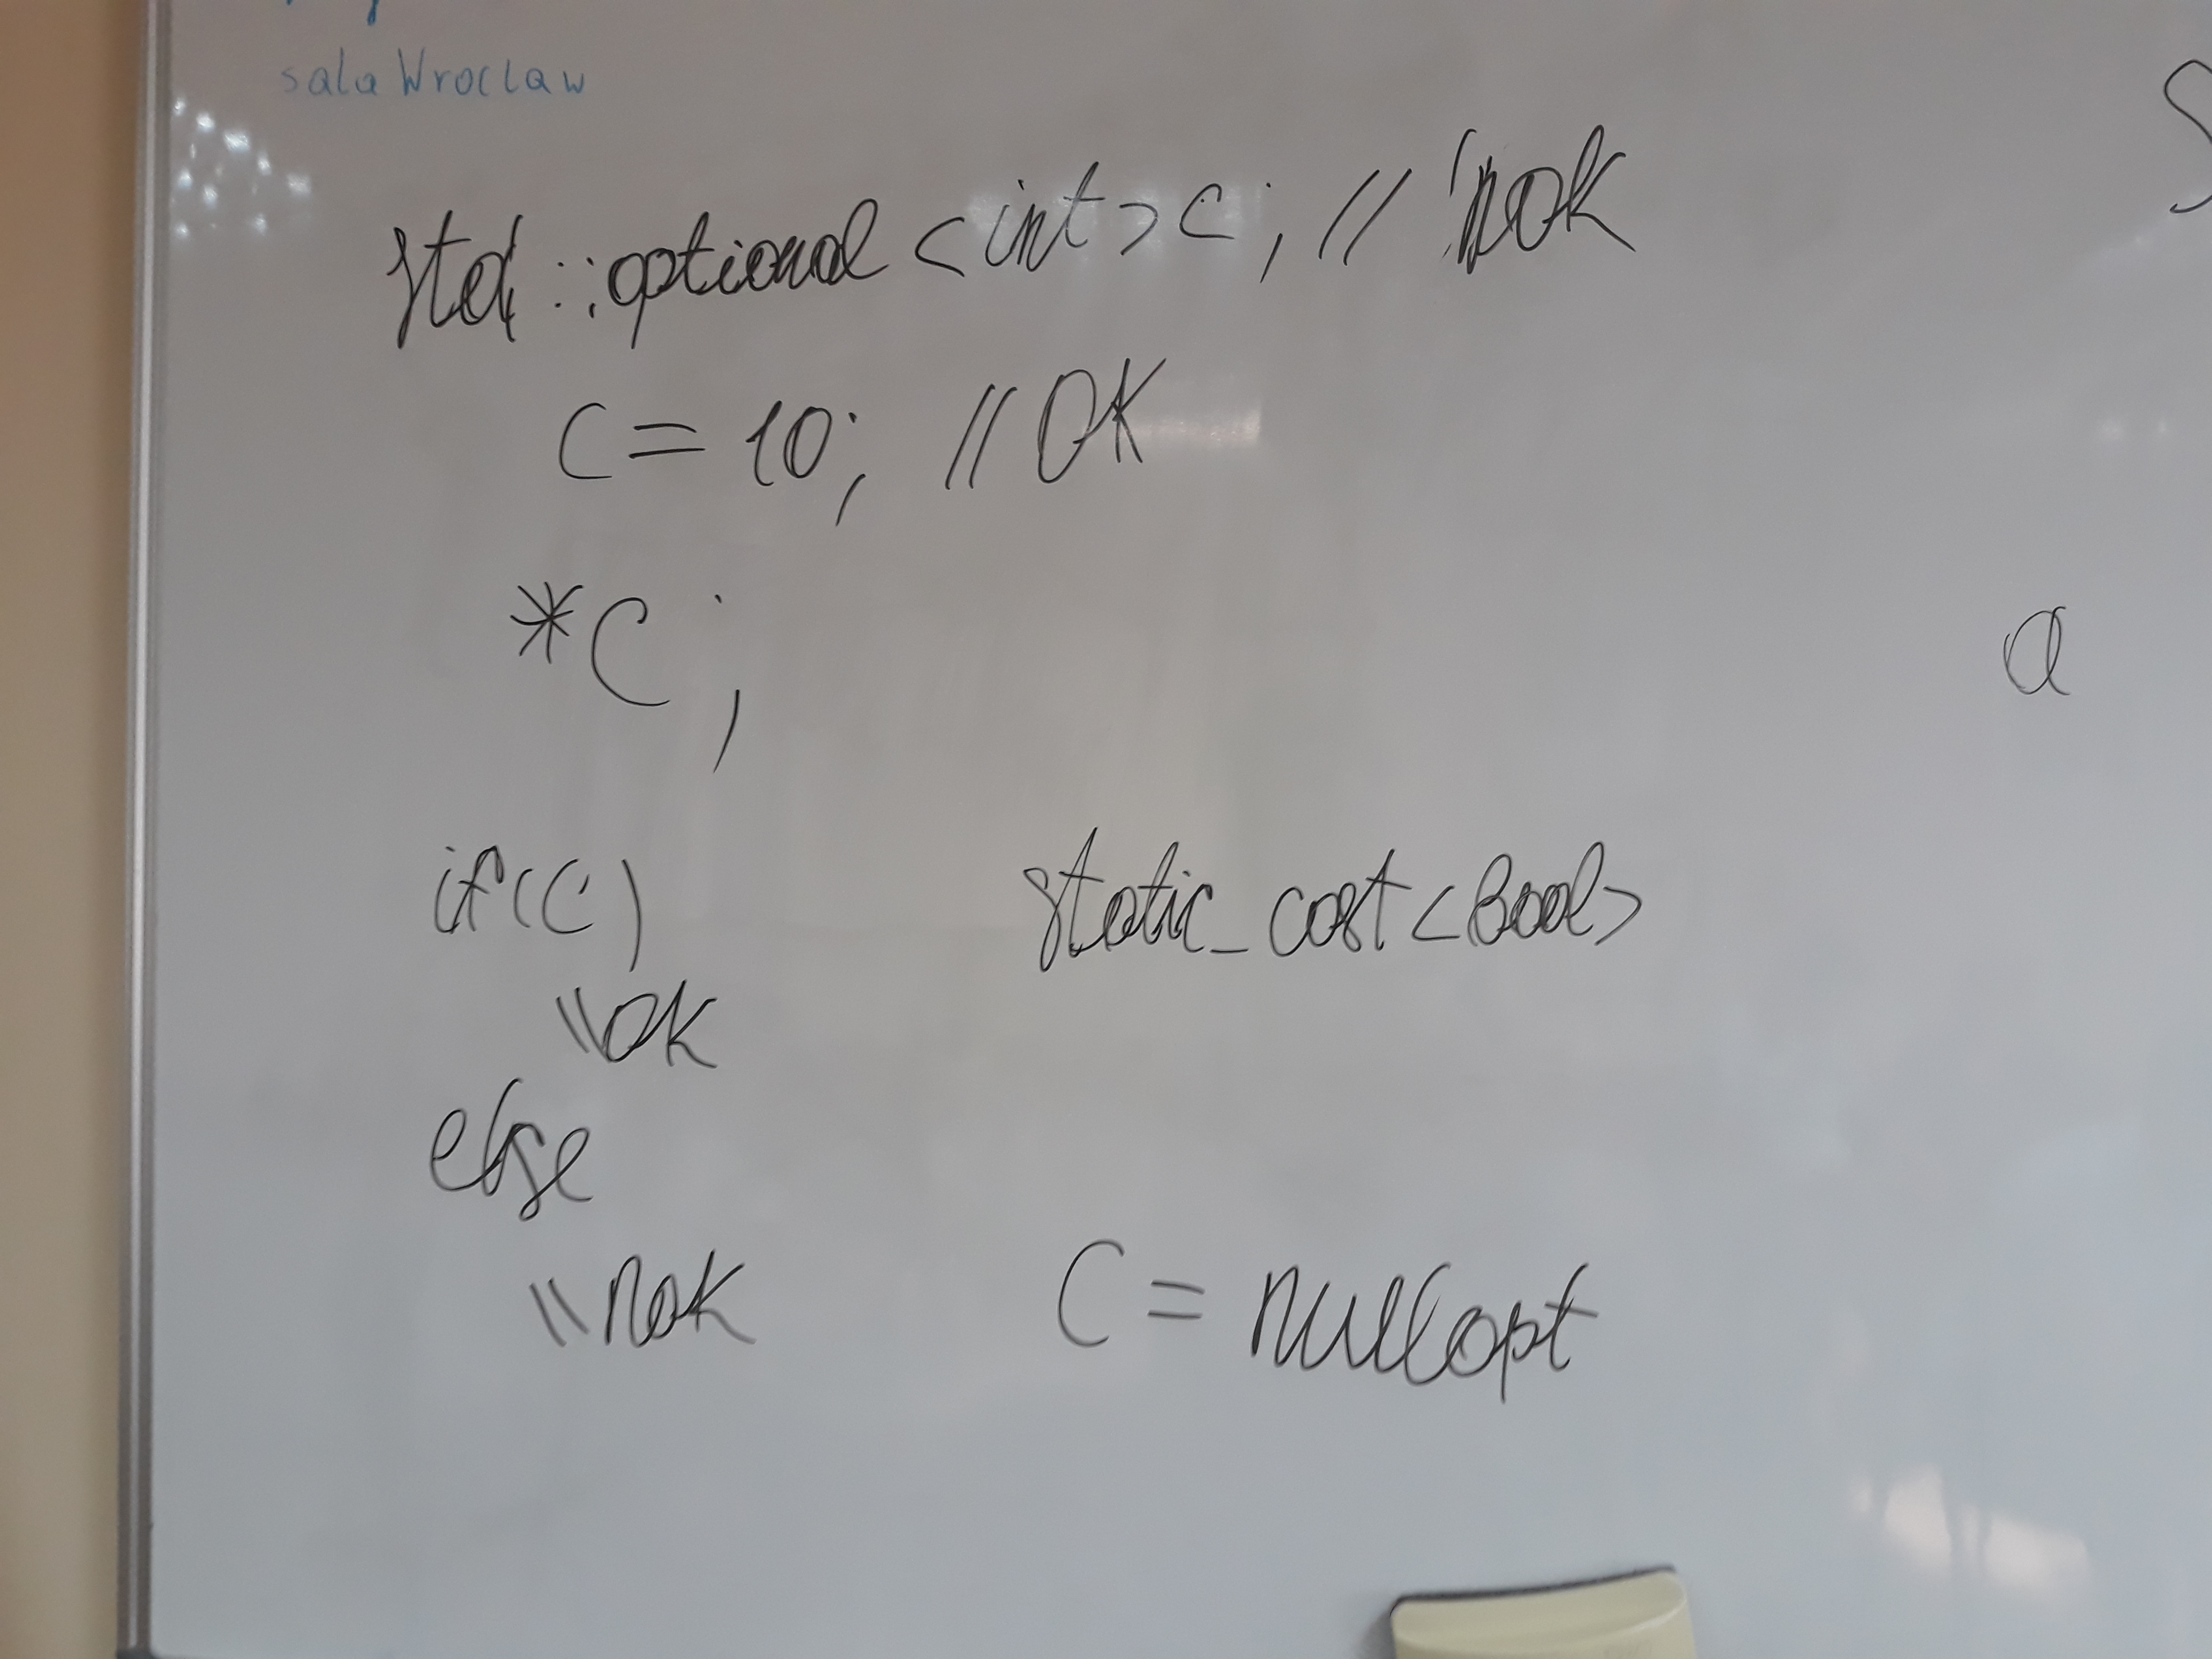 sala Wroclaw
std::optional <int> c; // nok
c = 10; // OK
*C;
if(c) static_cast<Bool>
\\ok
else
\\nok C = nullopt
a